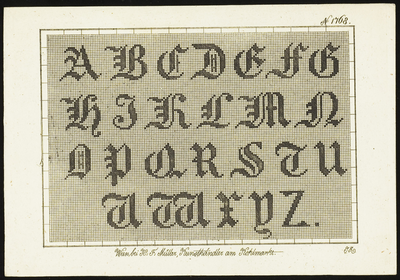 N 1768.
A B C D E F G
H I K L M N
O P Q R S T U
V W X Y Z.
Wien, bei H. F. Müller, Kunsthändler am Kohlmarkt.